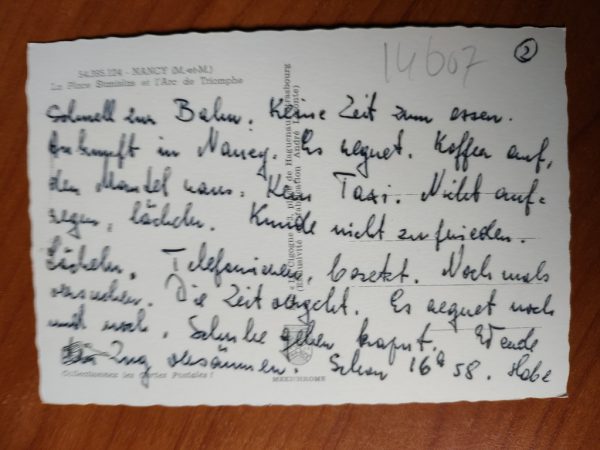 54.395.124 - NANCY (M.-et-M.)
La Place Stanislas et l'Arc de Triomphe
14607
2
Schnell zur Bahn. Keine Zeit zum essen.
Ankunft in Nancy. Es regnet. Koffer auf,
den Mantel raus. Kein Taxi. Nicht auf=
regen, lächeln. Kunde nicht zufrieden.
Lächeln. Telefonieren, besetzt. Nochmals
versuchen. Die Zeit vergeht. Es regnet noch
und noch. Schuhe gehen kaput. Werde
den Zug versäumen. Schon 16h 58. Habe
Collectionnez les Cartes Postales !
MEXICHROME
« La Cigogne », place de Haguenau, Strasbourg
(Exclusivité André Leconte)